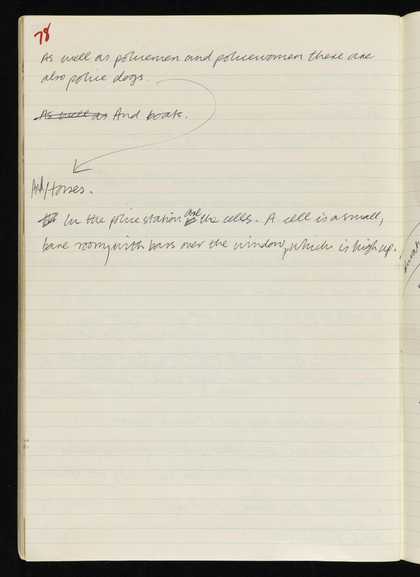 78
As well as policemen and policewomen there are
also police dogs.
As well as And boats.
And Horses.
In the police station are the cells. A cell is a small,
bare room, with bars over the window, which is high up.